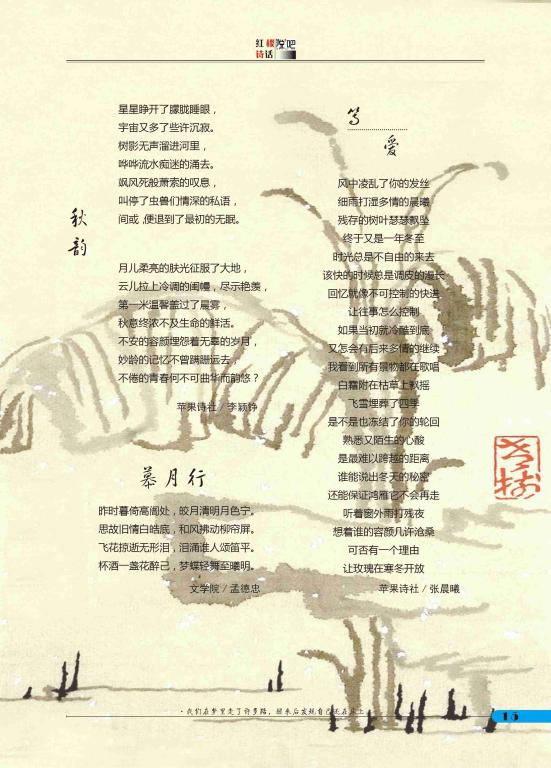 红楼隍吧
诗话
秋韵
星星睁开了朦胧睡眼，
宇宙又多了些许沉寂。
树影无声溜进河里，
哗哗流水痴迷的涌去。
飒风死般萧索的叹息，
叫停了虫兽们情深的私语，
间或，便退到了最初的无眠。
月儿柔亮的肤光征服了大地，
云儿拉上冷调的闺幔，尽示艳羡，
第一米温馨盖过了晨雾，
秋意终浓不及生命的鲜活。
不安的容颜埋怨着无辜的岁月，
妙龄的记忆不曾蹒跚远去，
不倦的青春何不可曲华而韵悠？
苹果诗社／李颖铮
慕月行
昨时暮倚高阁处，皎月清明月色宁。
思故旧情白皓底，和风拂动柳帘屏。
飞花掠逝无形泪，泪涌谁人颂笛平。
杯酒一盏花醉己，梦蝶轻舞至曦明。
文学院／孟德忠
等
爱
风中凌乱了你的发丝
细雨打湿多情的晨曦
残存的树叶瑟瑟飘坠
终于又是一年冬至
时光总是不自由的来去
该快的时候总是调皮的漫长
回忆就像不可控制的快进
让往事怎么控制
如果当初就冷酷到底
又怎会有后来多情的继续
我看到所有景物都在歌唱
白霜附在枯草上飘摇
飞雪埋葬了四季
是不是也冻结了你的轮回
熟悉又陌生的心酸
是最难以跨越的距离
谁能说出冬天的秘密
还能保证鸿雁它不会再走
听着窗外雨打残夜
想着谁的容颜几许沧桑
可否有一个理由
让玫瑰在寒冬开放
苹果诗社／张晨曦
·我们在梦里走了许多路，醒来后发现自己还在床上
15